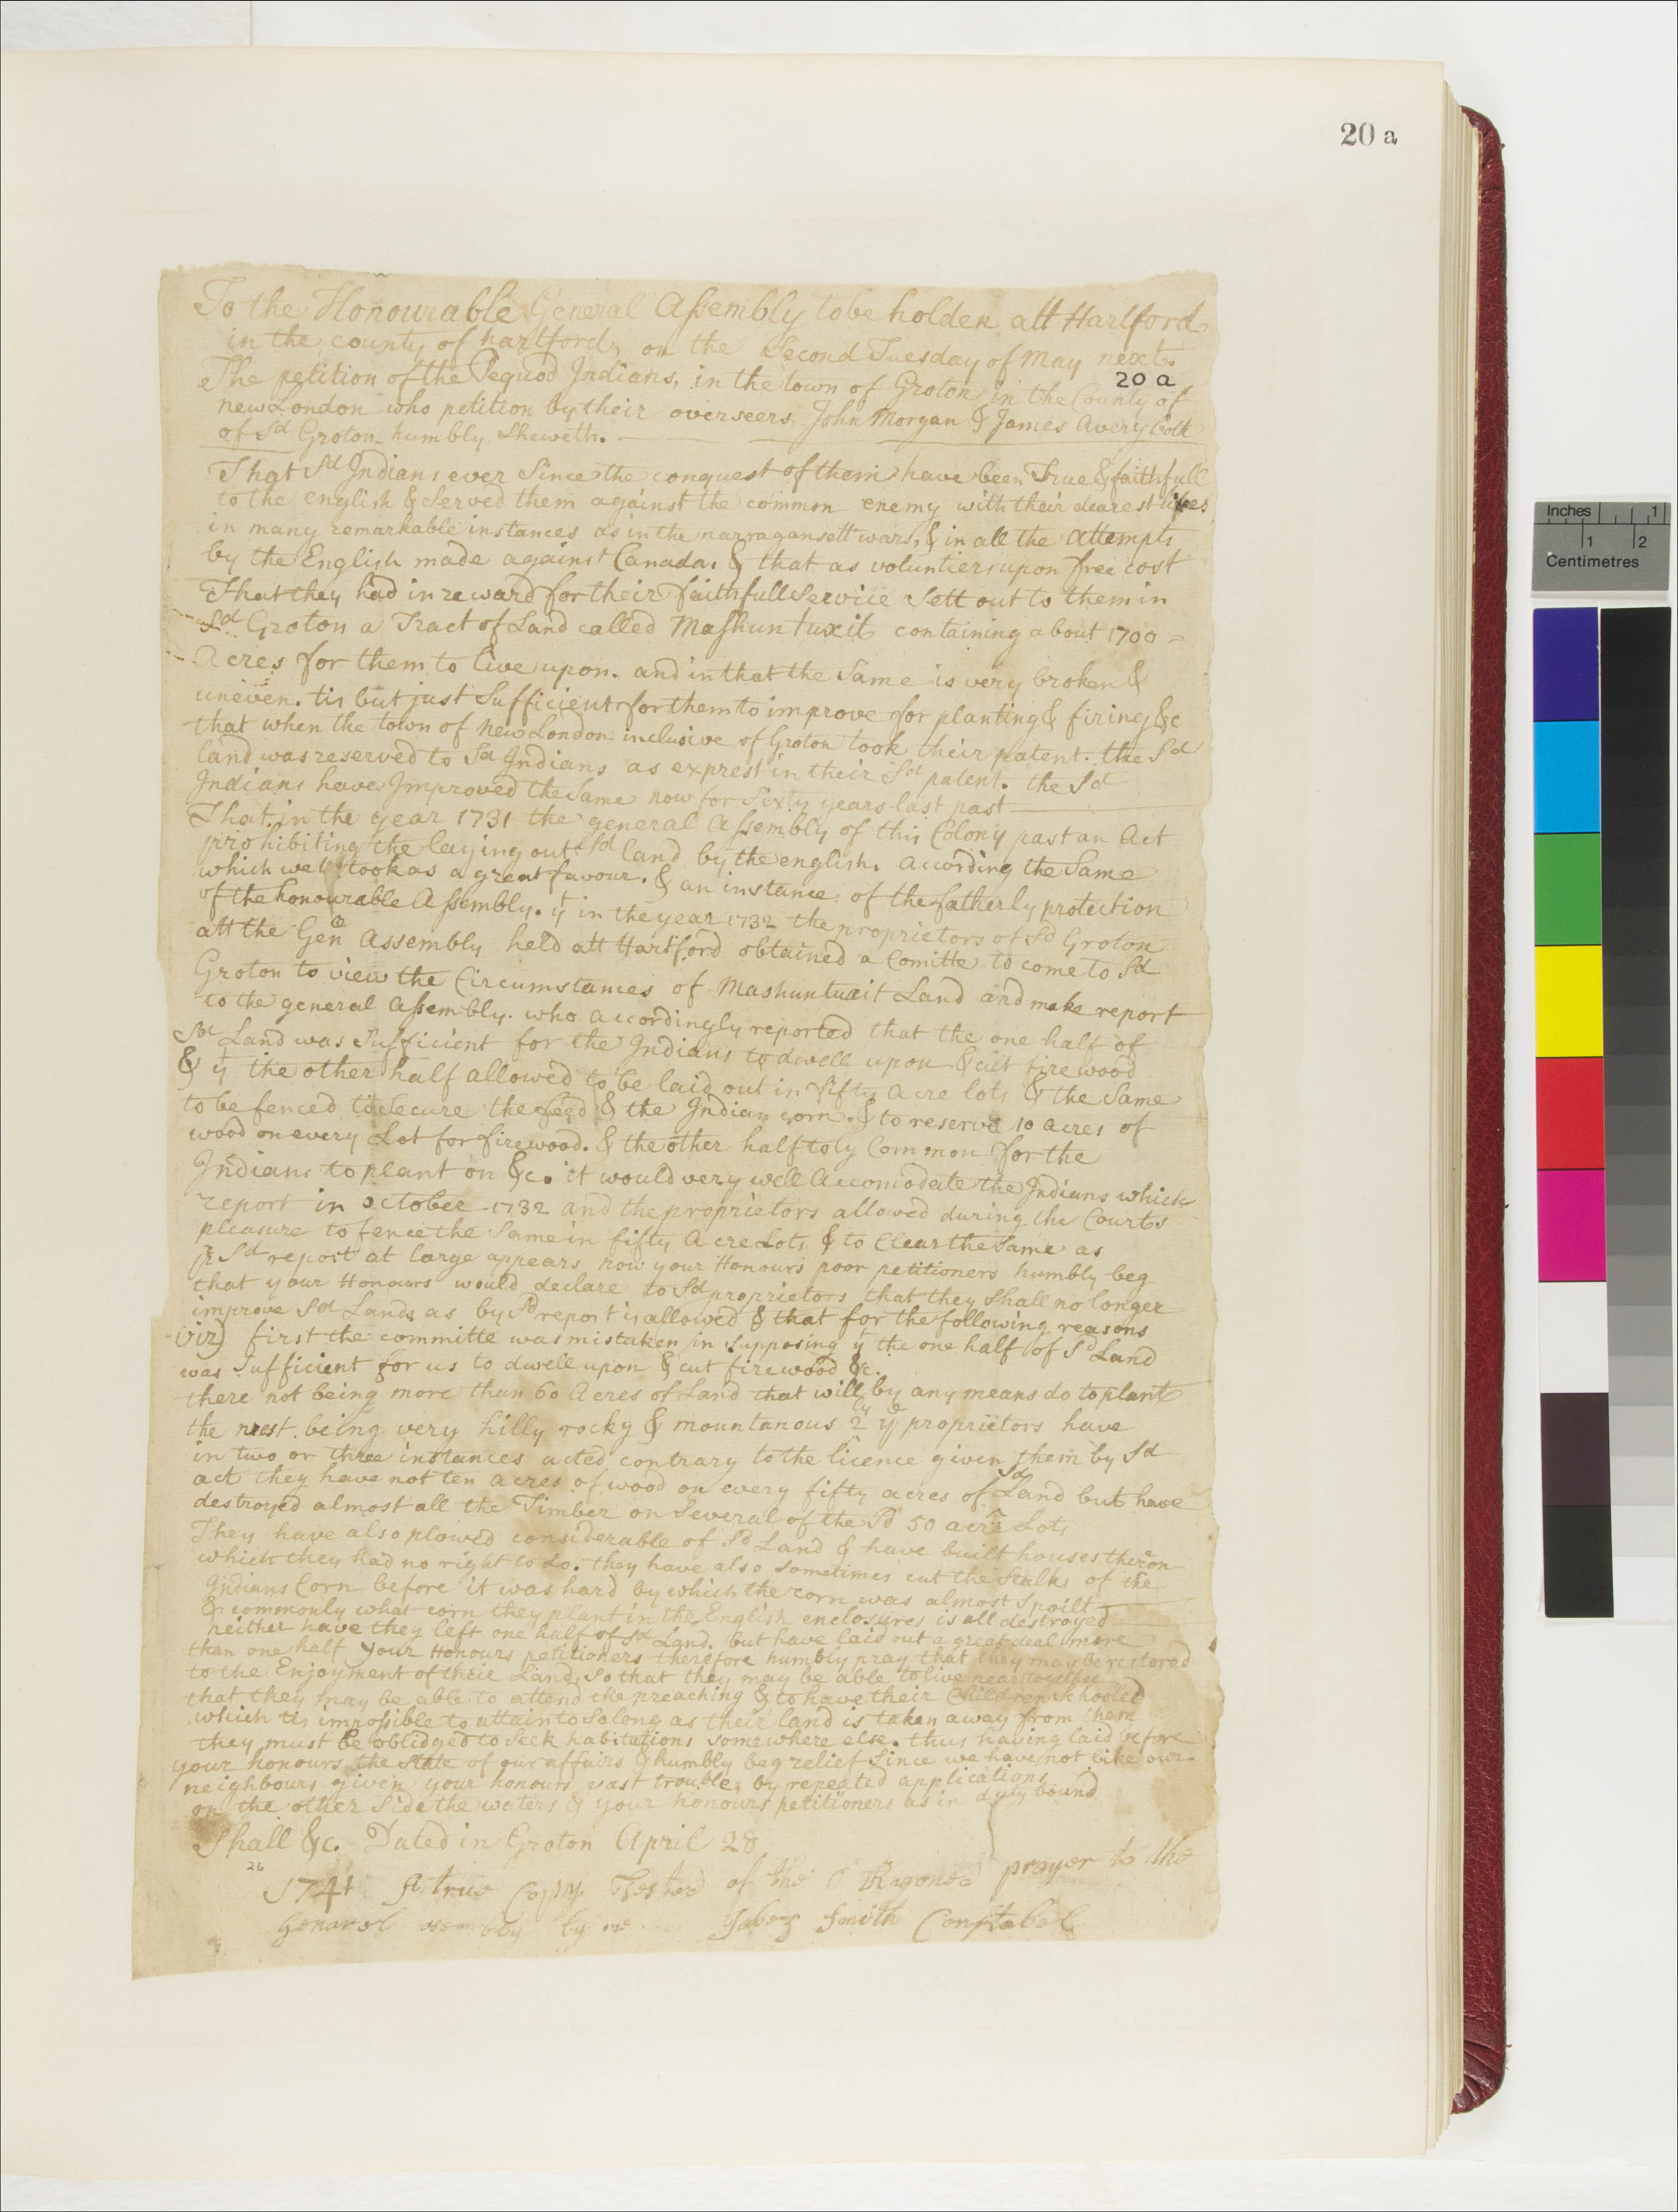 20 a
To the Honourable General Assembly to be holden att Hartford
in the county of hartford, on the Second Tuesday of May next.
20 a
The petition of the Pequod Indians, in the town of Groton in the County of
new London who petition by their overseers John Morgan & James Avery both
of Sd Groton humbly Sheweth.
That Sd Indians ever Since the conquest of them have been True & faithfull
to the english & Served them against the common enemy with their dearest lives
in many remarkable instances as in the narragansett wars, & in all the attempts
by the English made against Canada. & that as voluntiers upon free cost
That they had in reward for their faithfull Service Sett out to them in
Sd Groton a Tract of Land called Mashuntuxit containing about 1700
Acres for them to live upon. and in that the Same is very broken &
uneven. tis but just Sufficient for them to improve for planting & firing &c
that when the town of New London inclusive of Groton took their patent. the Sd
land was reserved to Sd Indians as exprest in their Sd patent. the Sd
Indians have Improved the Same now for Sixty years last past
That in the year 1731 the general Assembly of this Colony past an Act
prohibiting the laying out Sd land by the english. according the Same
which we took as a great favour. & an instance of the fatherly protection
of the honourable Assembly. yt in the year 1732 the proprietors of Sd Groton
att the Genll Assembly held att Hartford obtained a Comitte to come to Sd
Groton to view the Circumstances of Mashuntuxit Land and make report
to the general Assembly. who accordingly reported that the one half of
Sd Land was Sufficient for the Indians to dwell upon & cut firewood
& yt the other half allowed to be laid out in fifty Acre lots & the Same
to be fenced to Secure the feed & the Indian corn. & to reserve 10 acres of
wood on every Lot for firewood. & the other half to ly Common for the
Indians to plant on &c. it would very well Accomodate the Indians which
report in October 1732 and the proprietors allowed during the Courts
pleasure to fence the Same in fifty Acre Lots & to Clear the Same as
pr Sd report at large appears now your Honours poor petitioners humbly beg
that your Honours would declare to Sd proprietors that they shall no longer
improve Sd Lands as by Sd report is allowed & that for the following reasons
(viz) first the committe was mistaken in Supposing yt the one half of Sd Land
was Sufficient for us to dwell upon & cut firewood &c.
there not being more than 60 Acres of Land that will by any means do to plant
the rest being very hilly rocky & mountanous 2ly ye proprietors have
in two or three instances acted contrary to the licence given them by Sd
act they have not ten acres of wood on every fifty acres of Sd Land but have
destroyed almost all the Timber on Several of the Sd 50 acre Lots
They have also plowed considerable of Sd Land & have built houses theron
which they had no right to do. they have also Sometimes cut the Stalks of the
Indians Corn before it was hard by which the corn was almost Spoilt
& commonly what corn they plant in the English enclosures is all destroyed
neither have they left one half of Sd Land. but have laid out a great deal more
than one half your Honours petitioners therefore humbly pray that they may be restored
to the Enjoyment of their Land, So that they may be able to live near together
that they may be able to attend the preaching & to have their Children Schooled
which tis impossible to attain to So long as their land is taken away from them
they must be oblidged to Seek habitations somewhere else. thus having laid before
your honours the State of our affairs & humbly beg relief Since we have not like our
neighbours given your honours vast trouble, by repeated applications
on the other Side the waters & your honours petitioners as in duty bound
Shall &c. Dated in Groton April 28
26
1741 A true Copy Tested of the prayer to the
Genarol by me Jabez Smith Constabel
Inches 1
1 2
Centimetres